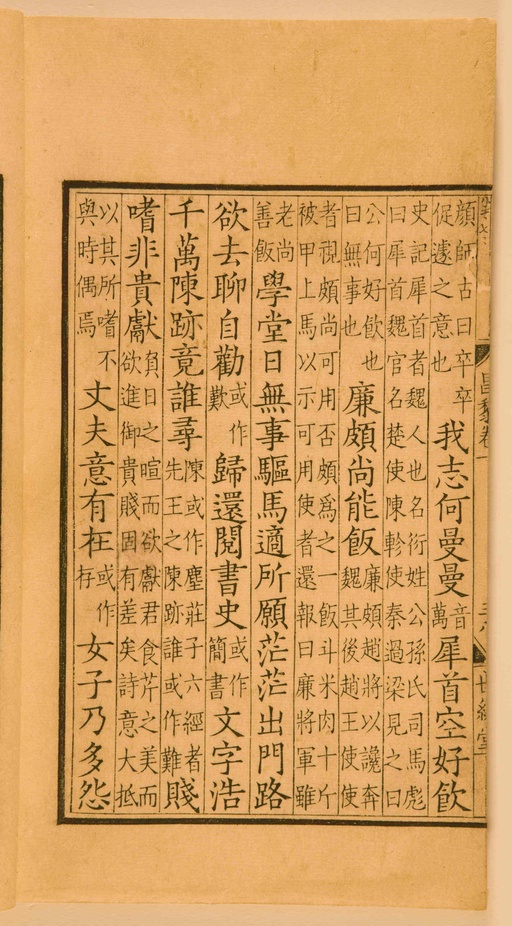 顏師古曰卒卒促遽之意也我志何曼曼音萬犀首空好飲
史記犀首者魏人也名衍姓公孫氏司馬彪曰犀首魏官名楚使陳軫使秦過梁見之曰
公何好飲也曰無事也廉頗尚能飯廉頗趙將以讒奔魏其後趙王使使
者視頗尚可用否頗爲之一飯斗米肉十斤被甲上馬以示可用使者還報曰廉將軍雖
老尚善飯學堂日無事驅馬適所願茫茫出門路
欲去聊自勸或作歎歸還閱書史或作簡書文字浩
千萬陳跡竟誰尋陳或作塵莊子六經者先王之陳跡誰或作難賤
嗜非貴獻負日之暄而欲獻君食芹之美而欲進御貴賤固有差矣詩意大抵
以其所嗜不與時偶焉丈夫意有在或作存女子乃多怨